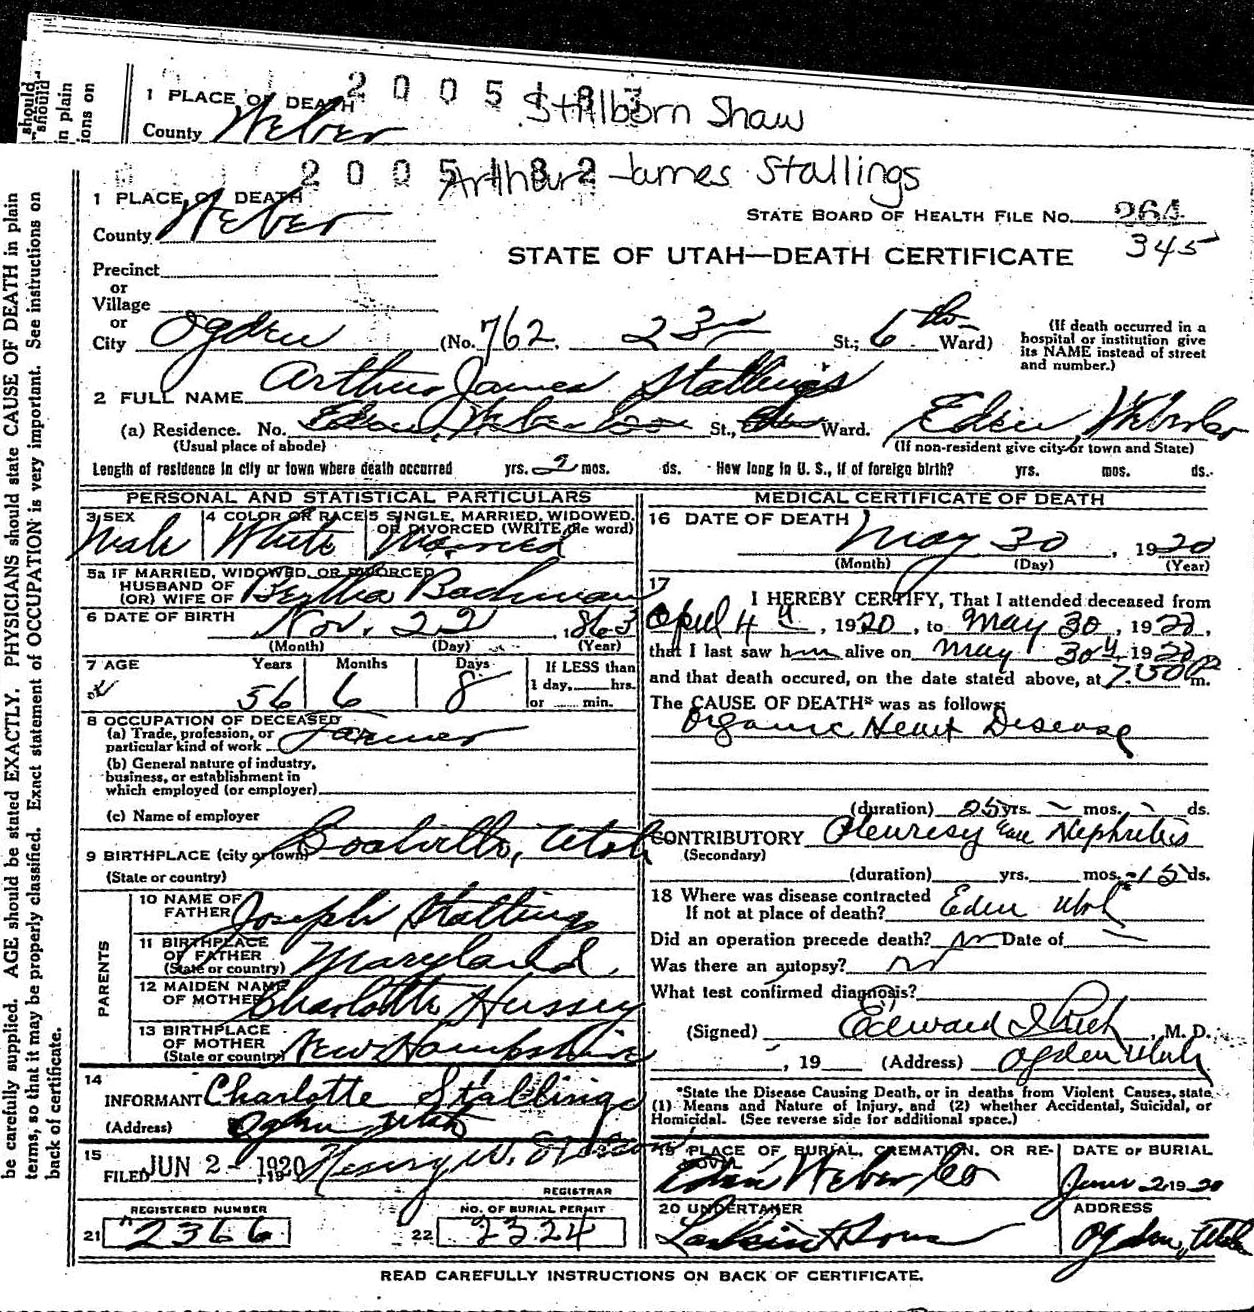 1 PLACE OF DEATH 2005183 Stillborn Shaw
County Weber
2005182 Arthur James Stallings
1 PLACE OF DEATH
County Weber
STATE BOARD OF HEALTH FILE NO. 264
345
STATE OF UTAH—DEATH CERTIFICATE
Precinct
or
Village
or
City Ogden (No. 762 23rd St.; 6th Ward)
(If death occurred in a
hospital or institution give
its NAME instead of street
and number.)
2 FULL NAME Arthur James Stallings
(a) Residence. No. St., Ward. Eden, Weber Co
(Usual place of abode) (If non-resident give city or town and State)
Length of residence in city or town where death occurred yrs. 2 mos. ds. How long in U. S., if of foreign birth? yrs. mos. ds.
PERSONAL AND STATISTICAL PARTICULARS
3 SEX 4 COLOR OR RACE 5 SINGLE, MARRIED, WIDOWED,
OR DIVORCED (WRITE the word)
Male White Married
5a IF MARRIED, WIDOWED, OR DIVORCED
HUSBAND OF
(OR) WIFE OF Bertha Bachman
6 DATE OF BIRTH Nov. 22, 1863
(Month) (Day) (Year)
7 AGE Years Months Days If LESS than
56 6 8 1 day, hrs.
or min.
8 OCCUPATION OF DECEASED
(a) Trade, profession, or
particular kind of work Farmer
(b) General nature of industry,
business, or establishment in
which employed (or employer)
(c) Name of employer
9 BIRTHPLACE (city or town) Coalville, Utah
(State or country)
PARENTS
10 NAME OF
FATHER Joseph Stallings
11 BIRTHPLACE
OF FATHER
(State or country) Maryland
12 MAIDEN NAME
OF MOTHER Charlotte Hussey
13 BIRTHPLACE
OF MOTHER
(State or country) New Hampshire
14
INFORMANT Charlotte Stallings
(Address) Ogden Utah
15
FILED JUN 2 - 1920 Henry W.
REGISTRAR
REGISTERED NUMBER NO. OF BURIAL PERMIT
21 2366 22 2324
MEDICAL CERTIFICATE OF DEATH
16 DATE OF DEATH
May 30, 1920
(Month) (Day) (Year)
17
I HEREBY CERTIFY, That I attended deceased from
April 4th, 1920, to May 30, 1920,
that I last saw him alive on May 30th 1920
and that death occured, on the date stated above, at 7.50 P m.
The CAUSE OF DEATH* was as follows:
Organic Heart Disease
(duration) 25 yrs. - mos. - ds.
CONTRIBUTORY Pleurisy and Nephritis
(Secondary)
(duration) yrs. mos. 15 ds.
18 Where was disease contracted
If not at place of death? Eden Utah
Did an operation precede death? no Date of
Was there an autopsy? no
What test confirmed diagnosis?
(Signed) Edward I Rich, M. D.
, 19 (Address) Ogden Utah
*State the Disease Causing Death, or in deaths from Violent Causes, state
(1) Means and Nature of Injury, and (2) whether Accidental, Suicidal, or
Homicidal. (See reverse side for additional space.)
19 PLACE OF BURIAL, CREMATION, OR RE- DATE OF BURIAL
MOVAL
Eden Weber Co June 2 1920
20 UNDERTAKER ADDRESS
Larkin & Sons Ogden, Utah
READ CAREFULLY INSTRUCTIONS ON BACK OF CERTIFICATE.
be carefully supplied. AGE should be stated EXACTLY. PHYSICIANS should state CAUSE OF DEATH in plain
terms, so that it may be properly classified. Exact statement of OCCUPATION is very important. See instructions on
back of certificate.
should
in plain
ions on